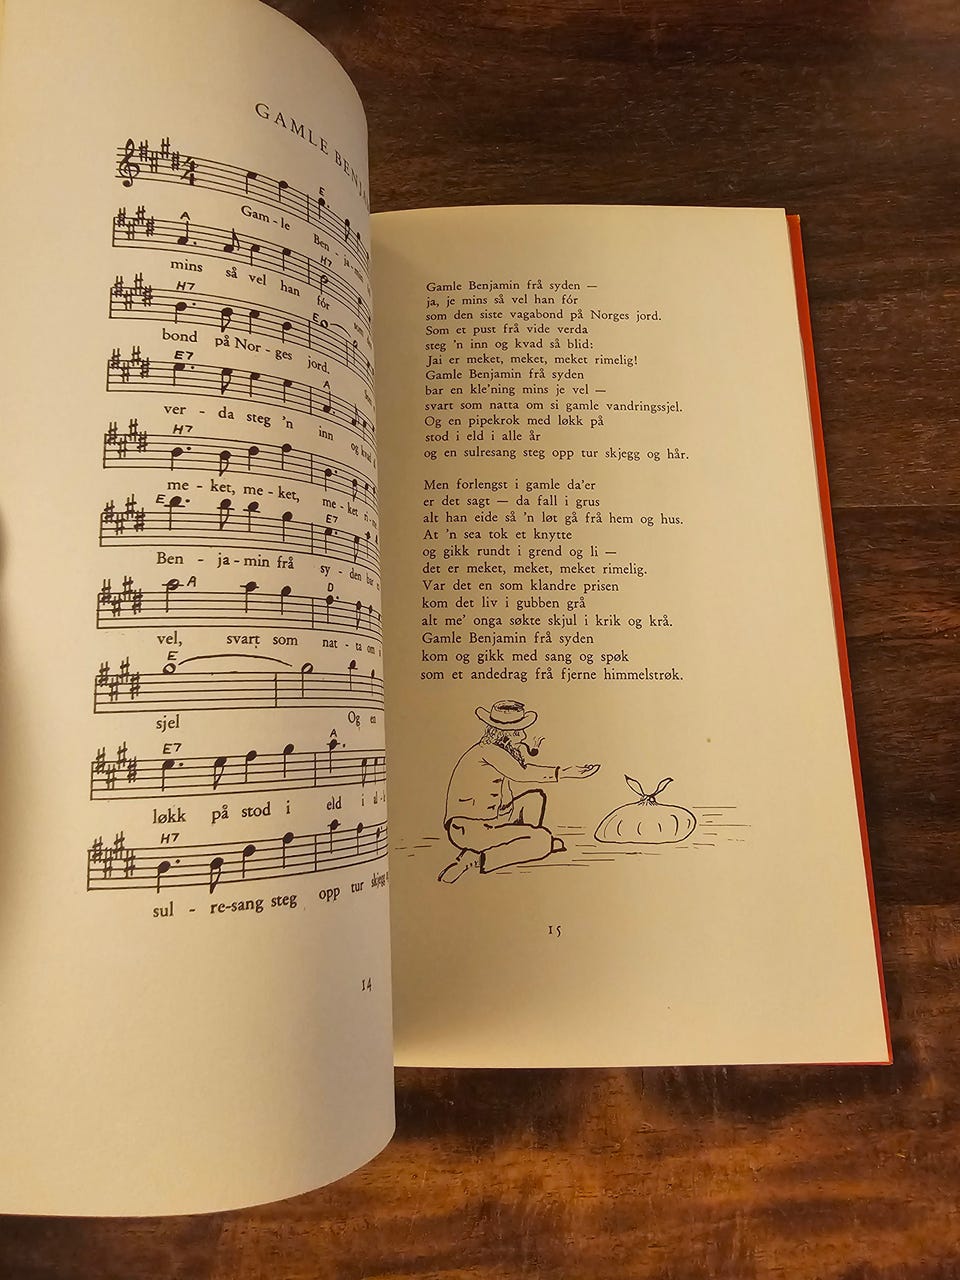 GAMLE
E
Gam - le Ben - ja - min
A H7
mins så vel han fór
H7 E
bond på Nor - ges jord.
E7 A
ver - da steg 'n inn og kvad
H7
me - ket, me - ket, me - ket
E E7
Ben - ja - min frå sy - den bar
A D
vel, svart som nat - ta om
E
sjel Og en
E7 A
løkk på stod i eld i
H7
sul - re-sang steg opp tur skjegg
14
Gamle Benjamin frå syden —
ja, je mins så vel han fór
som den siste vagabond på Norges jord.
Som et pust frå vide verda
steg 'n inn og kvad så blid:
Jai er meket, meket, meket rimelig!
Gamle Benjamin frå syden
bar en kle'ning mins je vel —
svart som natta om si gamle vandringssjel.
Og en pipekrok med løkk på
stod i eld i alle år
og en sulresang steg opp tur skjegg og hår.
Men forlengst i gamle da'er
er det sagt — da fall i grus
alt han eide så 'n løt gå frå hem og hus.
At 'n sea tok et knytte
og gikk rundt i grend og li —
det er meket, meket, meket rimelig.
Var det en som klandre prisen
kom det liv i gubben grå
alt me' onga søkte skjul i krik og krå.
Gamle Benjamin frå syden
kom og gikk med sang og spøk
som et andedrag frå fjerne himmelstrøk.
15